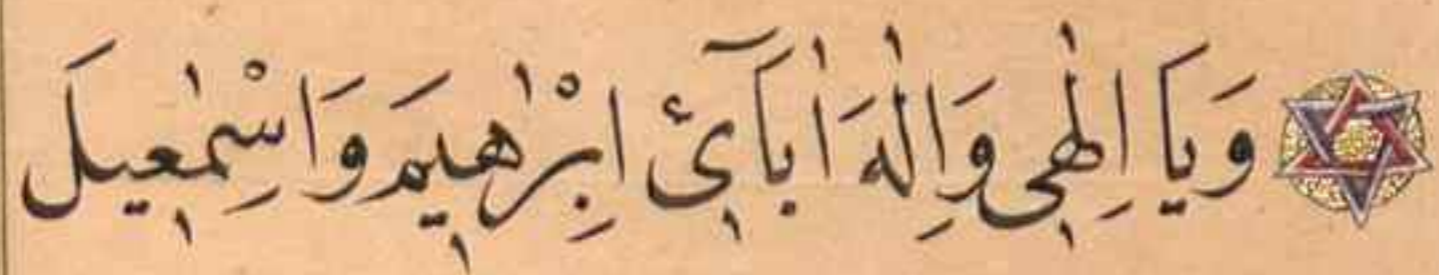 وَيَا اِلٰهٖى وَاِلٰهَ اٰبَآئٖ اِبْرٰهٖيمَ وَاِسْمٰعٖيلَ